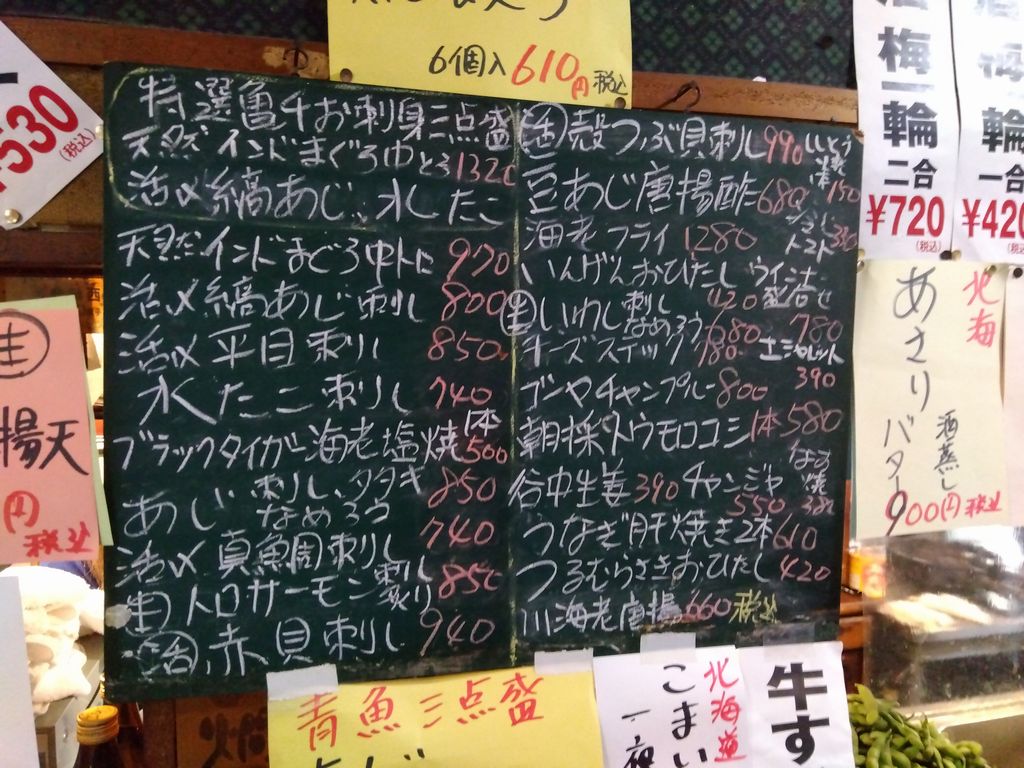 6個入 610円 税込
530
(税込)
特選亀千お刺身三点盛
天然インドまぐろ中とろ 1320
活〆縞あじ、水たこ
天然インドまぐろ中トロ 970
活〆縞あじ刺し 800
活〆平目刺し 850
水たこ刺し 740
ブラックタイガー海老塩焼 1本 500
あじ刺し、タタキ 850
なめろう
活〆真鯛刺し 740
生トロサーモン刺し 850
炙り
活赤貝刺し 940
活殻つぶ貝刺し 990
豆あじ唐揚酢 680
海老フライ 1280
冷しトマト
いんげんおひたし 420
ウインナー盛合せ 780
生いわし刺し
なめろう 680
チーズスティック 780
エシャレット 390
ゴーヤチャンプルー 800
朝採トウモロコシ 1本 580
谷中生姜 390 チャンジャ 550
なす焼
うなぎ肝焼き2本 610
つるむらさきおひたし 420
川海老唐揚 660 税込
梅一輪
二合
¥720
(税込)
輪
一合
¥420
(税込)
北海
あさり
酒蒸し
バター
900円 税込
生
揚天
円
税込
青魚三点盛
北海道
こまい
一夜
牛す